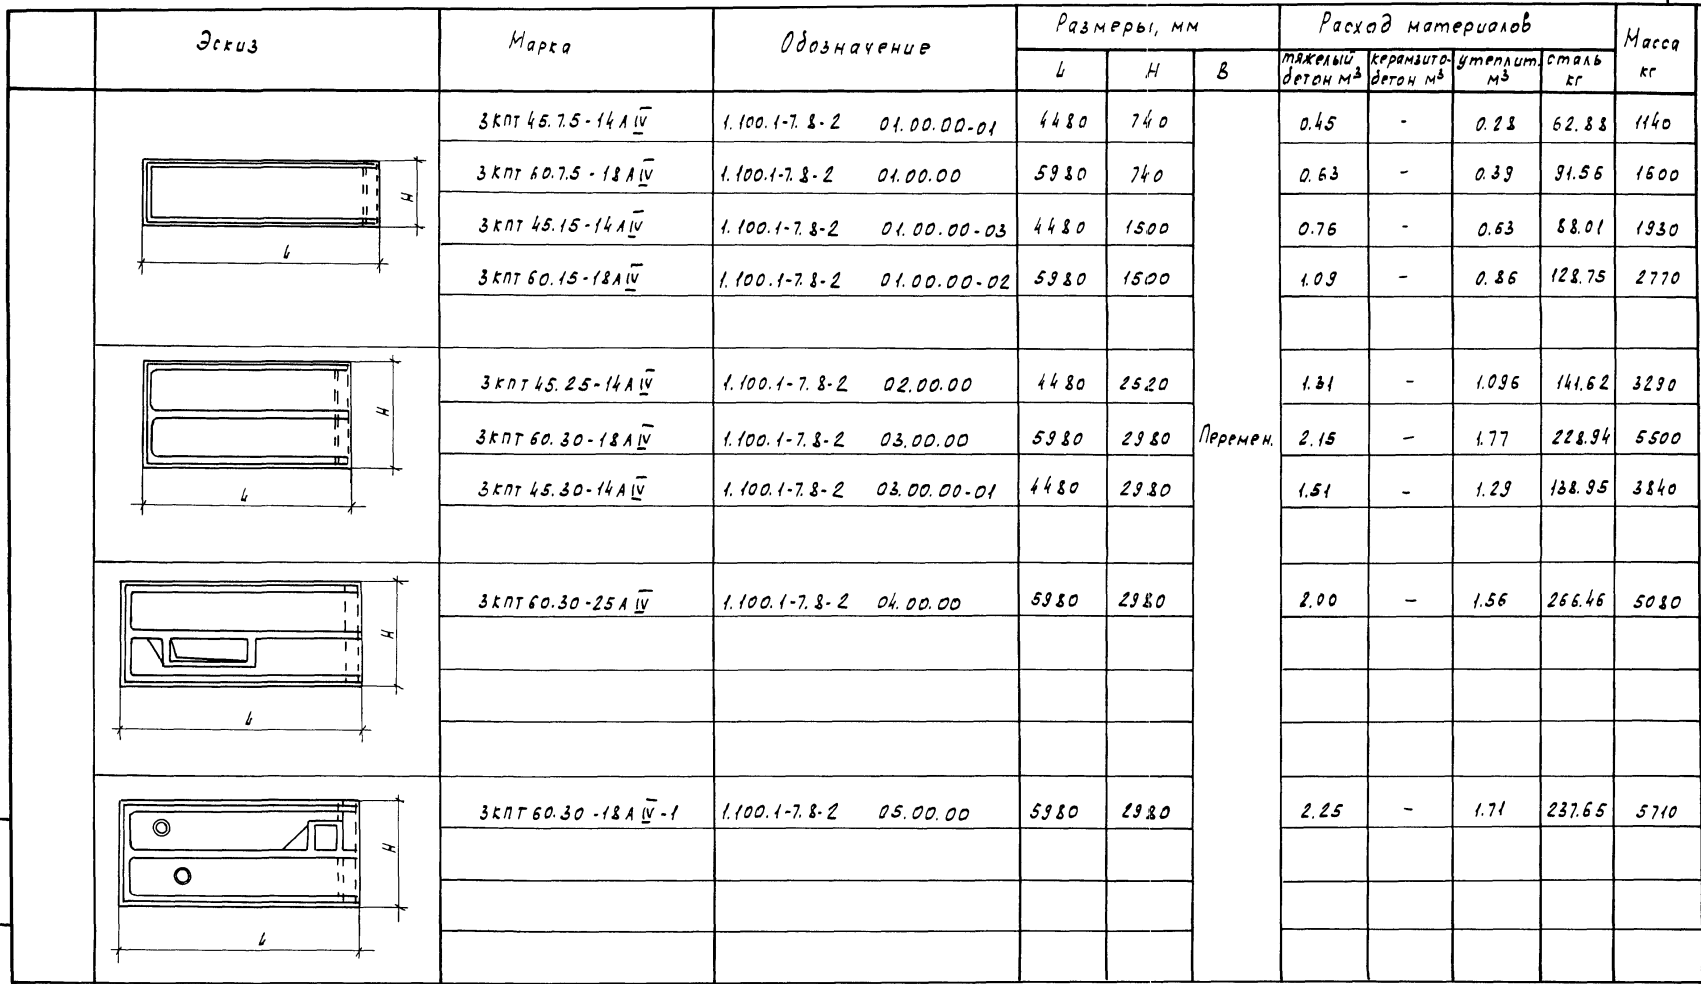 Эскиз Марка Обозначение Размеры, мм Расход материалов Масса кг
L H B тяжелый бетон м³ керамзито-бетон м³ утеплит. м³ сталь кг
3КПТ 45.7.5-14АIV 1.100.1-7.8-2 01.00.00-01 4480 740 0.45 - 0.28 62.88 1140
3КПТ 60.7.5-18АIV 1.100.1-7.8-2 01.00.00 5980 740 0.63 - 0.39 91.56 1600
3КПТ 45.15-14АIV 1.100.1-7.8-2 01.00.00-03 4480 1500 0.76 - 0.63 88.01 1930
3КПТ 60.15-18АIV 1.100.1-7.8-2 01.00.00-02 5980 1500 1.09 - 0.86 128.75 2770
H
L
3КПТ 45.25-14АIV 1.100.1-7.8-2 02.00.00 4480 2520 1.31 - 1.096 141.62 3290
3КПТ 60.30-18АIV 1.100.1-7.8-2 03.00.00 5980 2980 Перемен. 2.15 - 1.77 228.94 5500
3КПТ 45.30-14АIV 1.100.1-7.8-2 03.00.00-01 4480 2980 1.51 - 1.29 138.95 3840
H
L
3КПТ 60.30-25АIV 1.100.1-7.8-2 04.00.00 5980 2980 2.00 - 1.56 266.46 5080
H
L
3КПТ 60.30-18АIV-1 1.100.1-7.8-2 05.00.00 5980 2980 2.25 - 1.71 237.65 5710
H
L